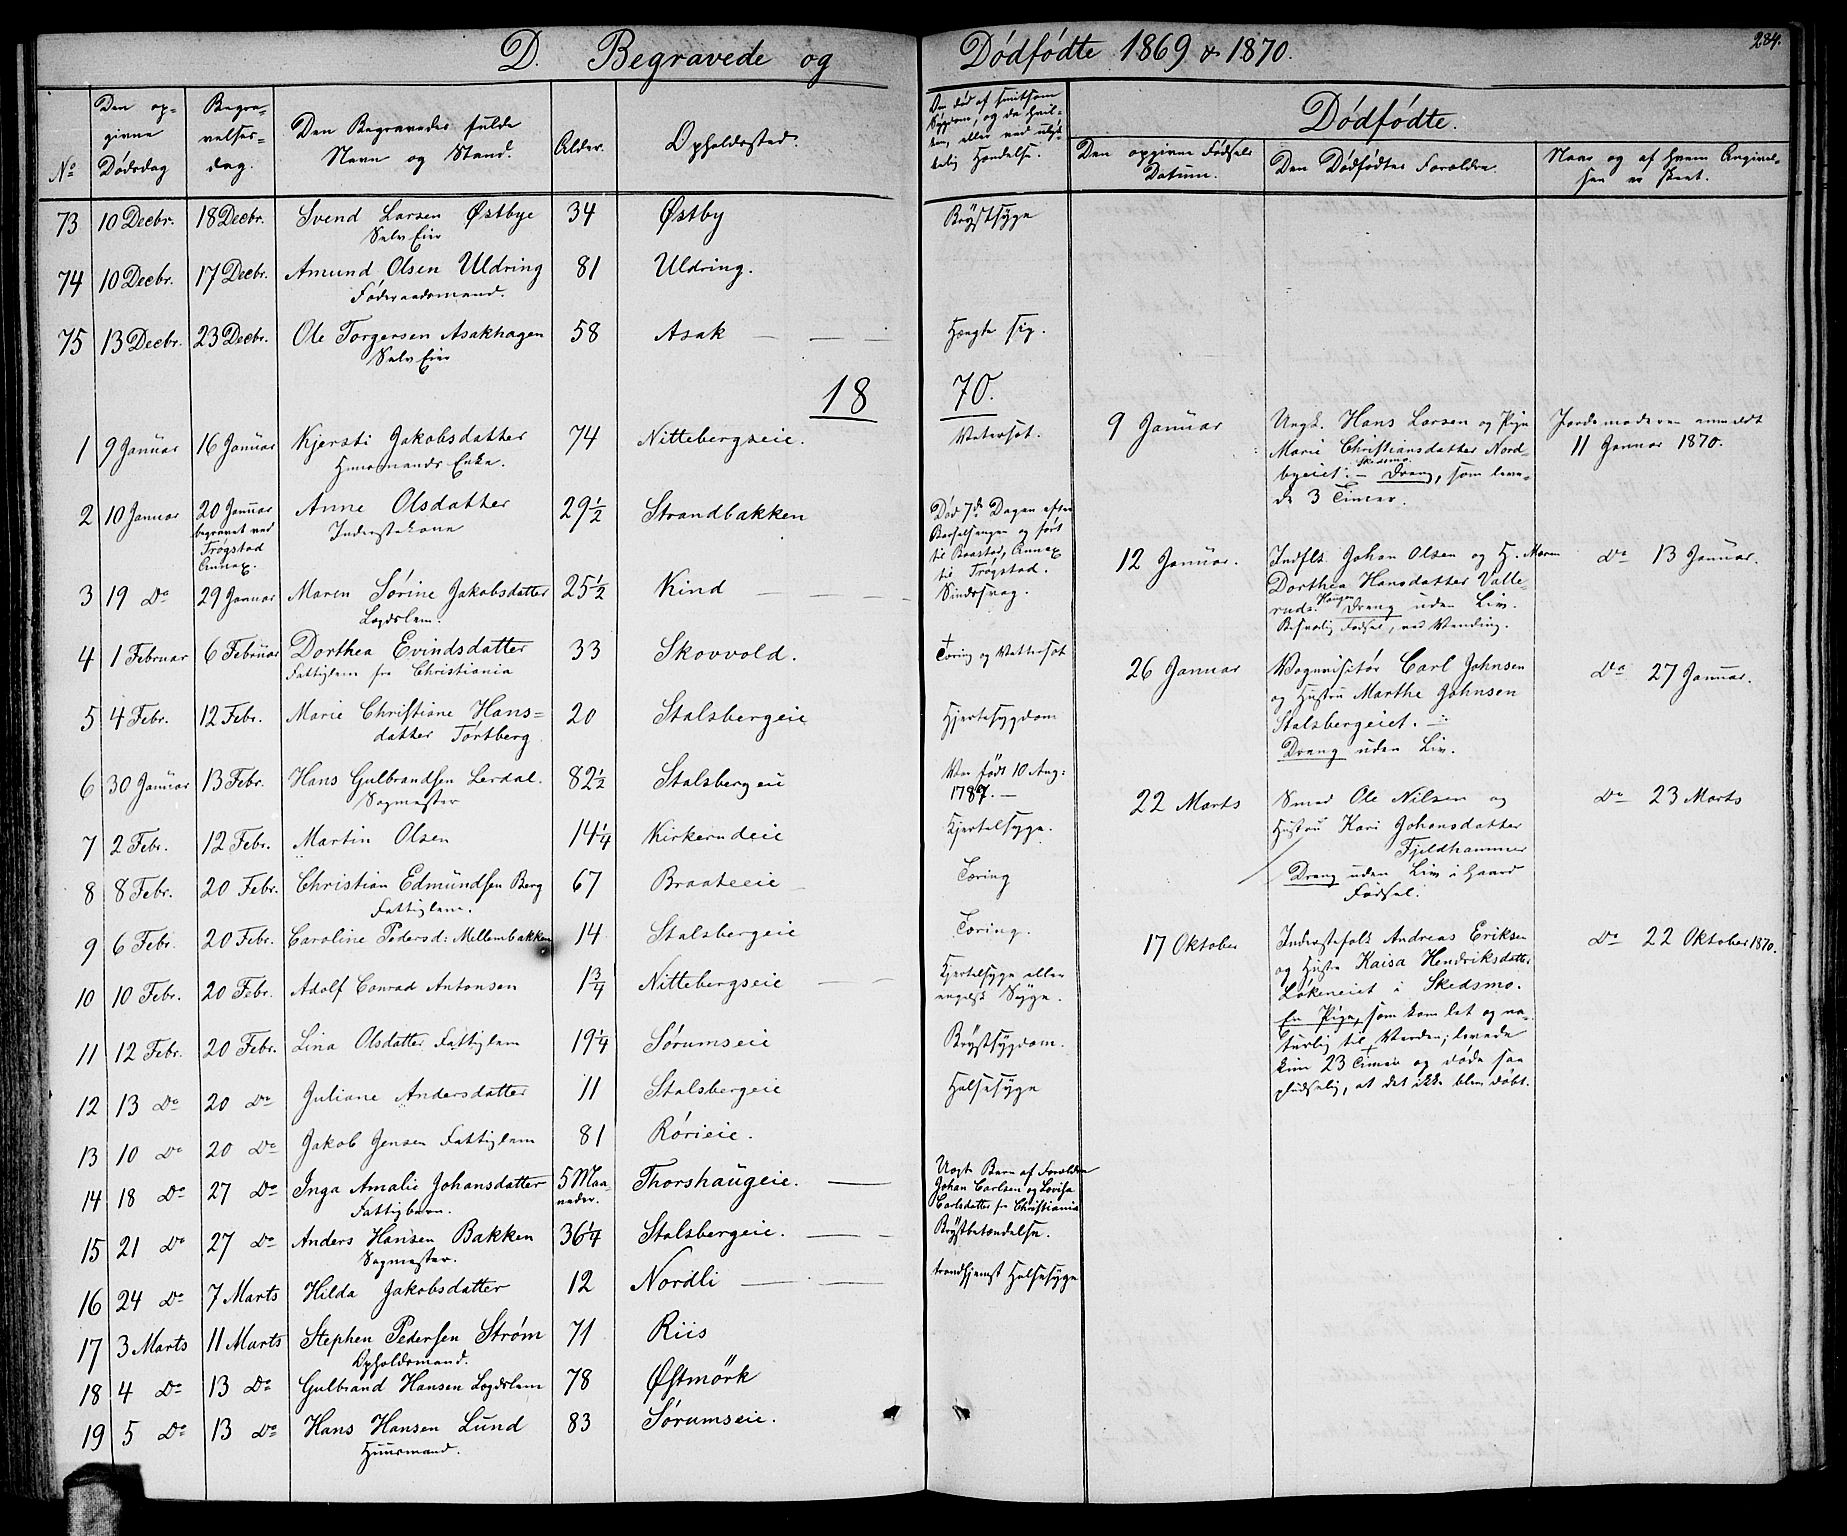 D. Begravede og Dödfödte 1869 & 1870.
284.
No
Den op-
givne
Dødsdag
Begra-
velses-
dag.
Den Begravedes fulde
Navn og Stand.
Alder.
Opholdssted.
Om død af smitsom
Sygdom, og da hvil-
ken, eller ved ulyk-
kelig Hændelse.
73 10 Decbr. 18 Decbr. Svend Larsen Østbye 34 Østby Brystsyge
Selv Eier
74 10 Decbr. 17 Decbr. Amund Olsen Uldring 81 Uldring.
Føderaadsmand.
75 13 Decbr. 23 Decbr. Ole Torgersen Asakhagen 58 Asak — — — Hængte sig.
Selv Eier
18 70.
1 9 Januar 16 Januar Kjersti Jakobsdatter 74 Nittebergseie. Vatersot.
Huusmands Enke.
2 10 Januar 20 Januar Anne Olsdatter 29½ Strandbakken Død 7de Dagen efter
begravet ved Inderstekone Barselsengen og ført
Trøgstad til Baastad, Annex
Annex. til Trøgstad.
3 19 Do 29 Januar Maren Sørine Jakobsdatter 25½ Kind — — — Sindssvag.
Lægdslem.
4 1 Februar 6 Februar Dorthea Evindsdatter 33 Skovvold. Tæring og Vattersot
Fattiglem fra Christiania
5 4 Febr. 12 Febr. Marie Christiane Hans= 20 Stalsbergeie Hjertesygdom
datter Tørtberg
6 30 Januar 13 Febr. Hans Gulbrandsen Lerdal. 82½ Stalsbergeie Var født 10 Aug:
Sagmester 1787. —
7 2 Febr. 12 Febr. Martin Olsen 14¼ Kirkerudeie Kjertelsyge.
8 8 Febr. 20 Febr. Christian Edmundsen Berg 67 Braateeie Tæring
Fattiglem.
9 6 Febr. 20 Febr. Caroline Pedersd: Mellembakken 14 Stalsbergeie Tæring.
10 10 Febr. 20 Febr. Adolf Conrad Antonsen 1¾ Nittebergseie — — Kjertelsyge eller
engelsk Syge.
11 12 Febr. 20 Febr. Lina Olsdatter Fattiglem 19¼ Sørumseie Brystsygdom.
12 13 Do 20 Do Juliane Andersdatter 11 Stalsbergeie Halsesyge
13 10 Do 20 Do Jakob Jensen Fattiglem 81 Rørieie.
14 18 Do 27 Do Inga Amalie Johansdatter 5 Maa- Thorshaugeie. — Uægte Barn af Forældre
Fattigbarn. neder. Johan Carlsen og Lovisa
Carlsdatter fra Christiania
15 21 Do 27 Do Anders Hansen Bakken 36¼ Stalsbergeie. — — Brystbetændelse.
Sagmester.
16 24 Do 7 Marts Hilda Jakobsdatter 12 Nordli — — trondhjemst Halsesyge
17 3 Marts 11 Marts Stephen Pedersen Strøm 71 Riis
Opholdsmand.
18 4 Do 13 Do Gulbrand Hansen Lægdslem 78 Østmörk
19 5 Do 13 Do Hans Hansen Lund 83 Sørumseie.
Huusmand.
Dødfødte.
Den opgivne Fødsels
Datum.
Den Dødfødtes Forældre.
Naar og af hvem Angivel-
sen er skeet.
9 Januar Ungk. Hans Larsen og Pige Jordemoderen anmeldt
Marie Christiansdatter Nord- 11 Januar 1870.
Skedsmo.
byeiet. — Dreng, som leve-
de 3 Timer.
12 Januar. Indflt Johan Olsen og H. Maren Do 13 Januar.
Dorthea Hansdatter Valle-
Haugen
ruds. Dreng uden Liv.
Besværlig Fødsel, ved Vending.
26 Januar Vognvisitør Carl Johnsen Do 27 Januar.
og Hustru Marthe Johnsen
Stalsbergeiet. —
Dreng uden Liv.
22 Marts Smed Ole Nilsen og Do 23 Marts
Hustru Kari Johansdatter
Fjeldhammer
Dreng uden Liv i Haard
Fødsel.
17 Oktober Inderstefolk Andreas Eriksen Do 22 Oktober 1870.
og Hustru Kaisa Hendriksdatter
Løkeneiet i Skedsmo.
En Pige, som kom let og na-
turlig til Verden; levede
kun 23 Timer og døde saa
pludselig, at det ikke blev døbt.